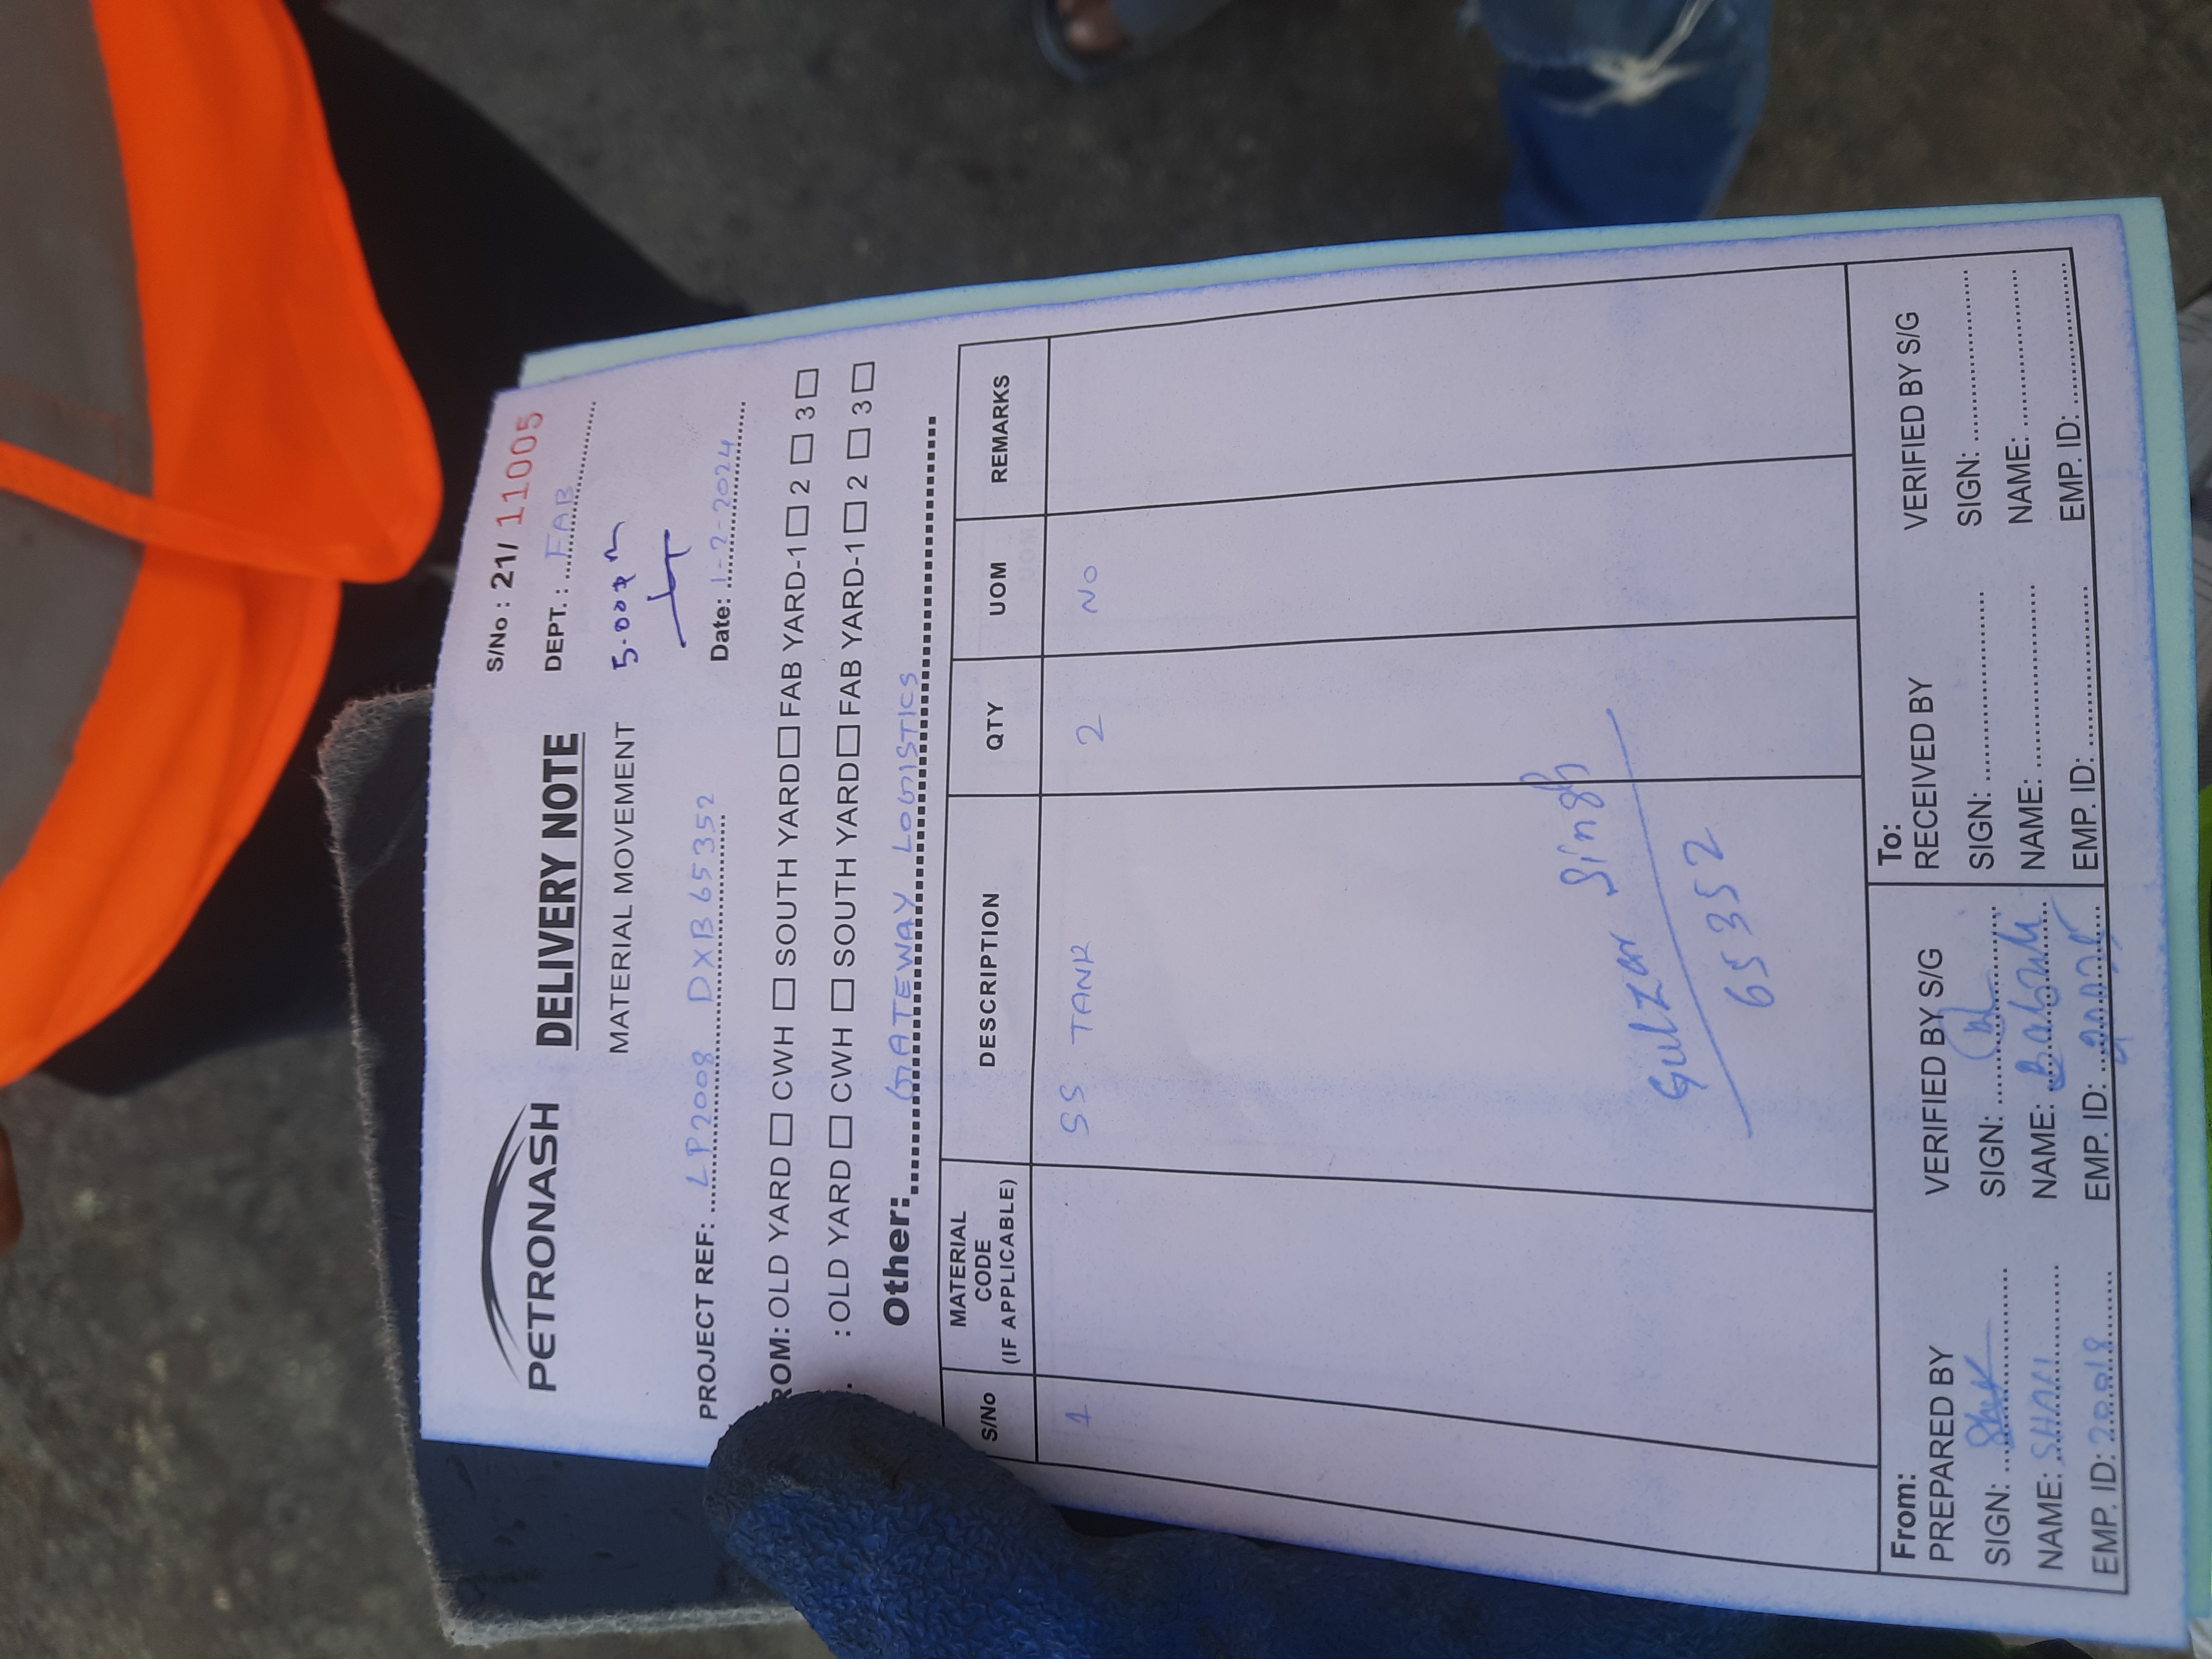 PETRONASH
DELIVERY NOTE
MATERIAL MOVEMENT
S/No : 21/ 11005
DEPT. : FAB
5.00pm
PROJECT REF: LP2008 DXB65352
Date: 1-2-2024
ROM: OLD YARD CWH SOUTH YARD FAB YARD-1 2 3
: OLD YARD CWH SOUTH YARD FAB YARD-1 2 3
Other: GATEWAY LOGISTICS
S/No MATERIAL CODE (IF APPLICABLE) DESCRIPTION QTY UOM REMARKS
1 SS TANK 2 NO
Gulzar Singh
65352
From:
PREPARED BY VERIFIED BY S/G
SIGN: SIGN:
NAME: SHAFI NAME:
EMP. ID: 20018 EMP. ID:
To:
RECEIVED BY VERIFIED BY S/G
SIGN: SIGN:
NAME: NAME:
EMP. ID: EMP. ID: